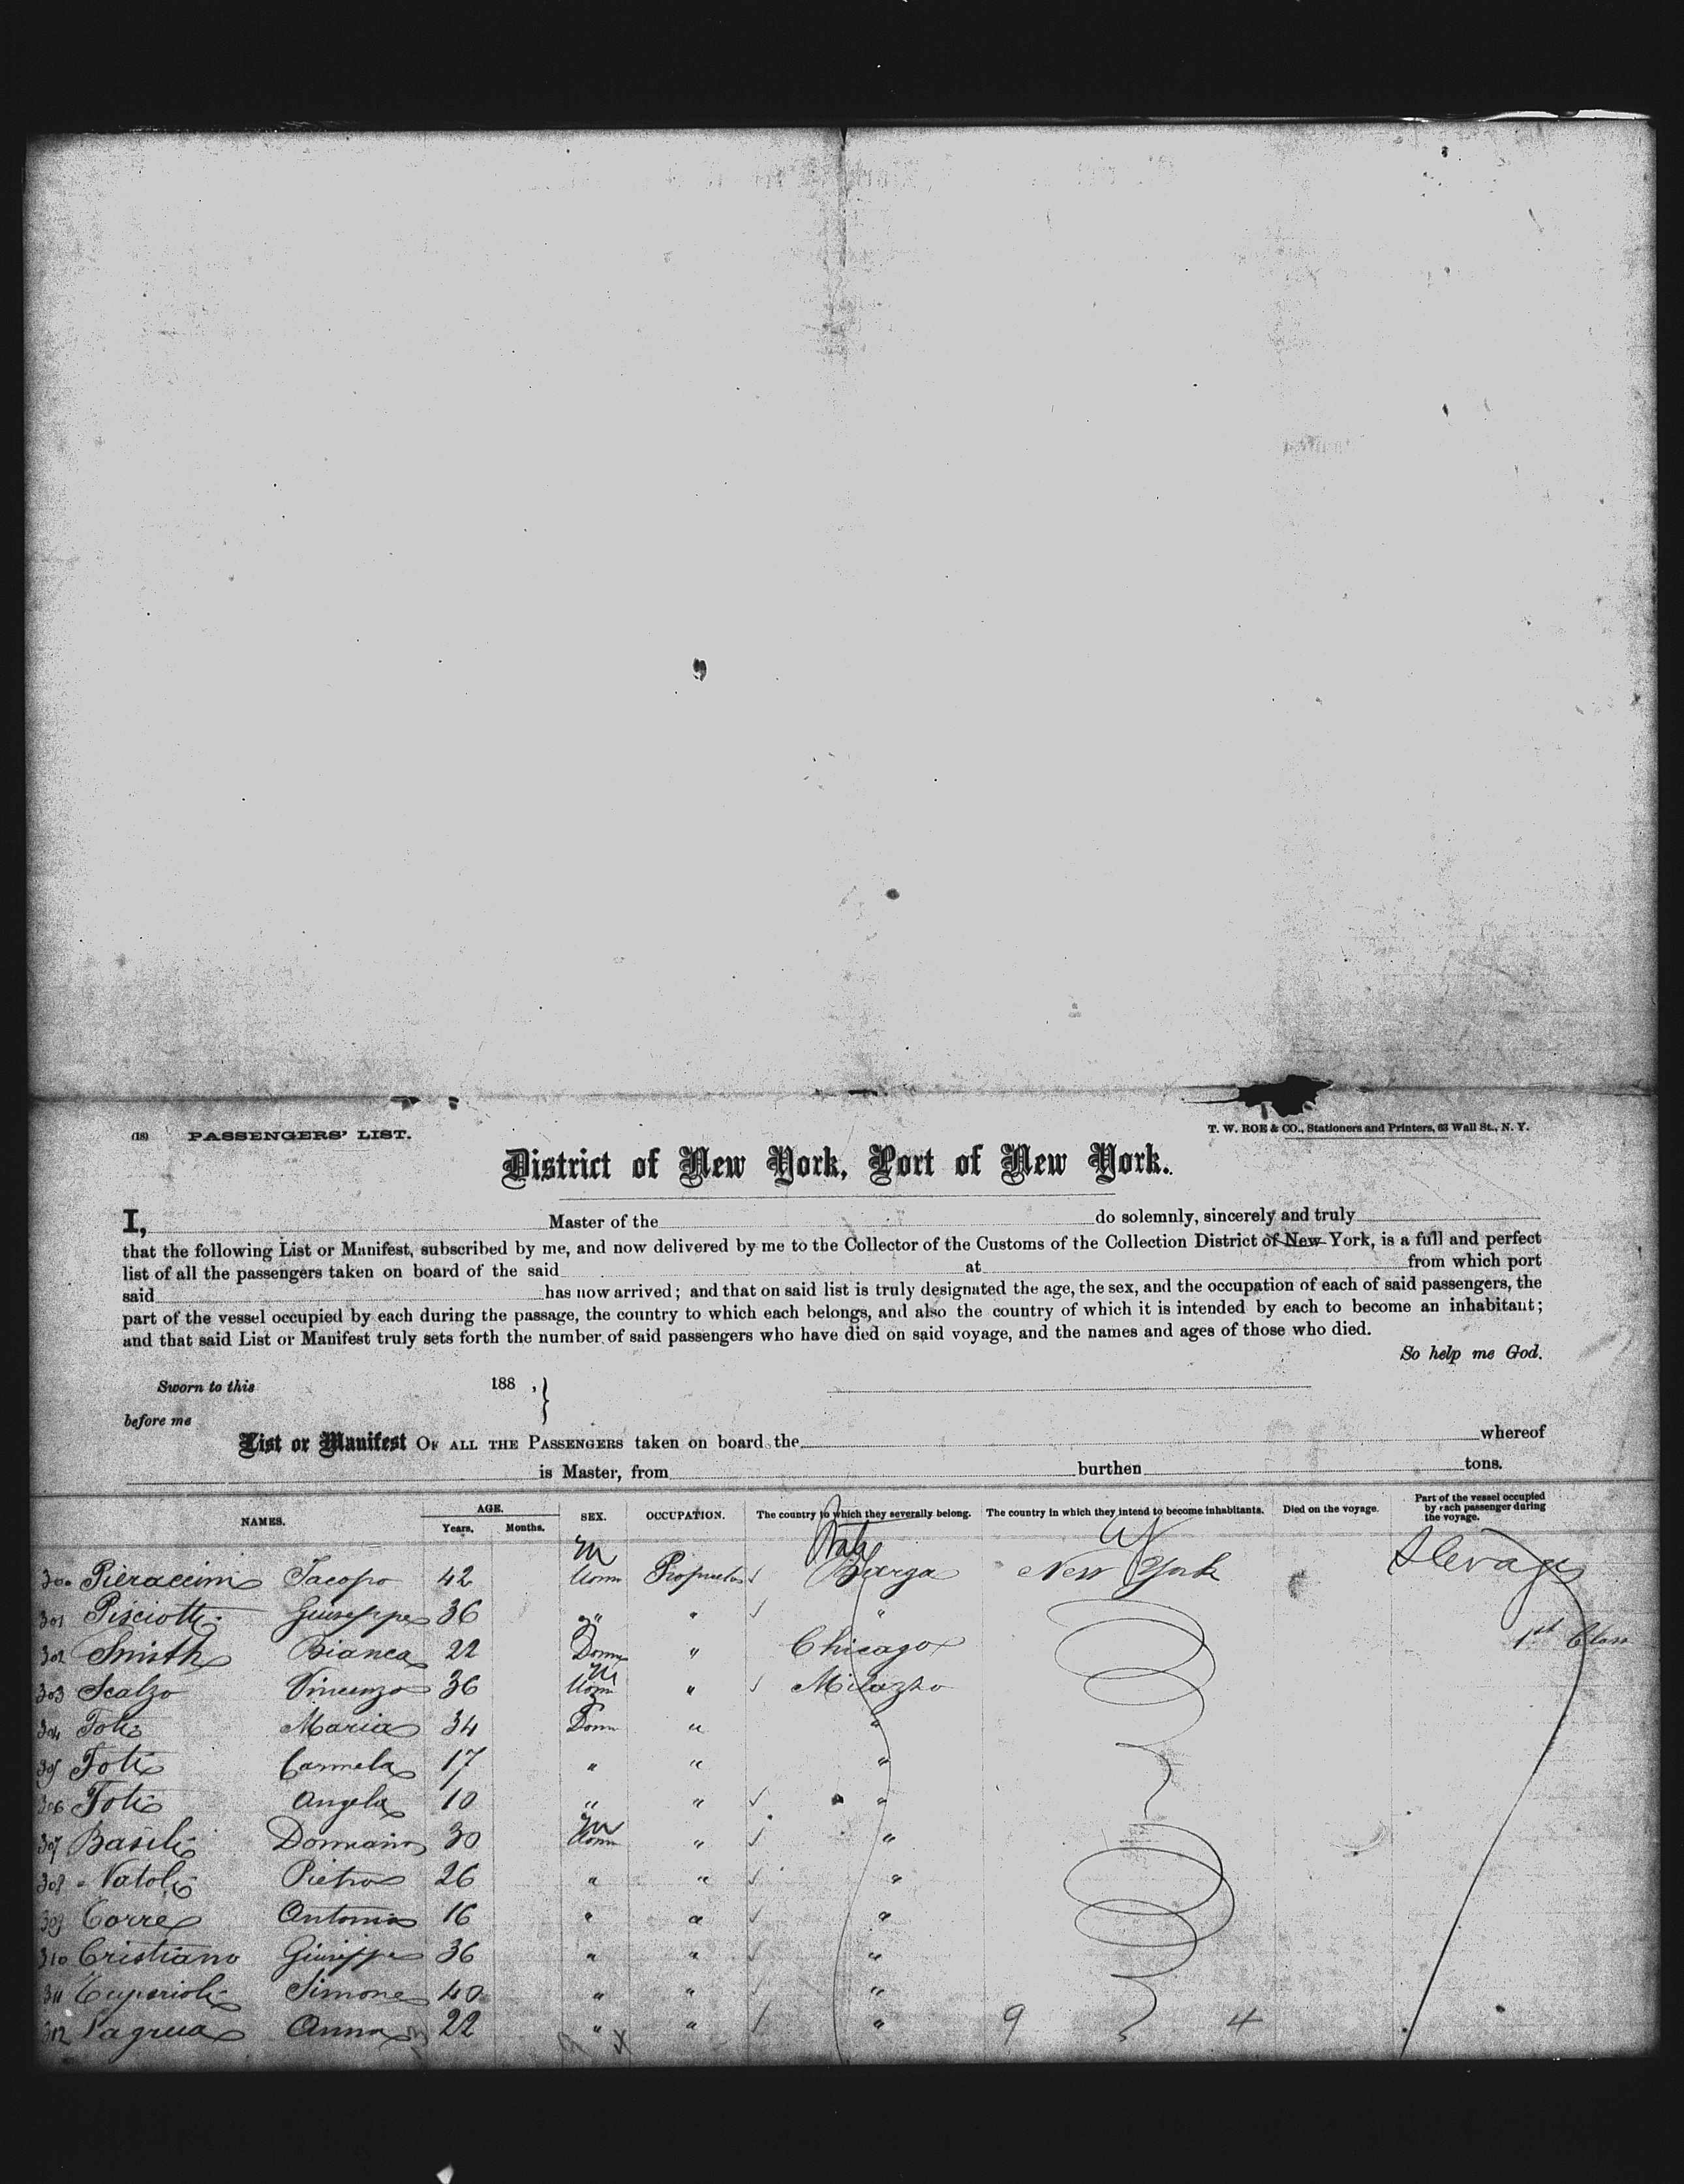 (18) PASSENGERS' LIST.
T. W. ROE & CO., Stationers and Printers, 63 Wall St., N. Y.
District of New York, Port of New York.
I, Master of the do solemnly, sincerely and truly
that the following List or Manifest, subscribed by me, and now delivered by me to the Collector of the Customs of the Collection District of New York, is a full and perfect
list of all the passengers taken on board of the said at from which port
said has now arrived; and that on said list is truly designated the age, the sex, and the occupation of each of said passengers, the
part of the vessel occupied by each during the passage, the country to which each belongs, and also the country of which it is intended by each to become an inhabitant;
and that said List or Manifest truly sets forth the number of said passengers who have died on said voyage, and the names and ages of those who died.
So help me God.
Sworn to this 188 ,
before me
List or Manifest OF ALL THE PASSENGERS taken on board the whereof
is Master, from burthen tons.
NAMES. AGE. Years. Months. SEX. OCCUPATION. The country to which they severally belong. The country in which they intend to become inhabitants. Died on the voyage. Part of the vessel occupied by each passenger during the voyage.
m Italy
300 Pieraccini Jacopo 42 Uom Proprietos Barga New York Sterage
301 Pisciotti Giuseppe 36 " " "
302 Smith Bianca 22 Donn " Chicago 1st Class
303 Scalzo Vincenzo 36 Uom " Milazzo
304 Foti Maria 34 Donn " "
305 Foti Carmela 17 " " "
306 Foti Angela 10 " " "
307 Basili Domiano 30 Uom " "
308 Natoli Pietro 26 " " "
309 Correx Antonio 16 " " "
310 Cristiano Giuseppe 36 " " "
311 Cuperioli Simone 40 " " "
312 Lagrua Anna 22 " " " 9 4